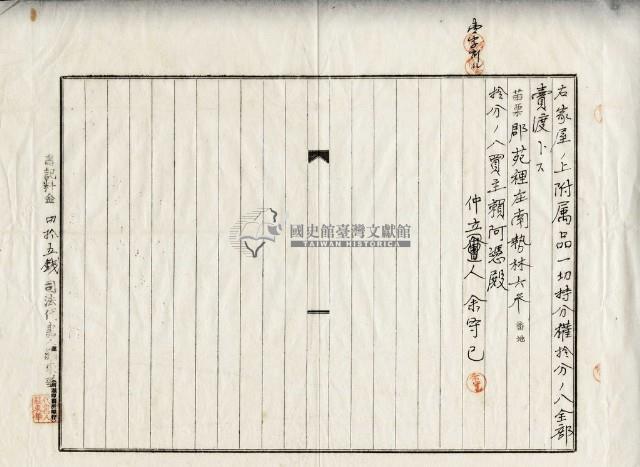 右家屋ノ上附属品一切持分權拾分ノ八全部
賣渡ト又
苗栗郡苑裡庄南勢林六 番地
拾分ノ八買主賴阿憑殿
仲立人 余守己
書記料金 四拾五錢 司法代書人
國史館臺灣文獻館
TAIWAN HISTORICA